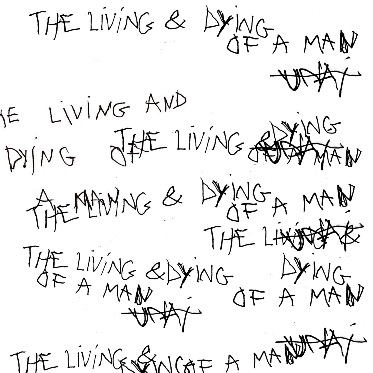 THE LiViNG & DYiNG
OF A MAN
UPAJ
E LIVING AND
DYING OF THE LiViNG & DYiNG
OF A MAN
A MAN
THE LIVING & DYiNG
OF A MAN
THE LIVING &
THE LiViNG & DYiNG
OF A MAN
DYiNG
OF A MAN
THE LiViNG &
OF A MAN